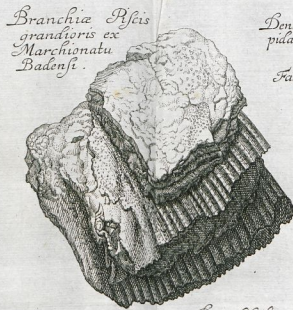 Branchiæ Piscis
grandioris ex
Marchionatu
Badensi.
Den
pida
Fa